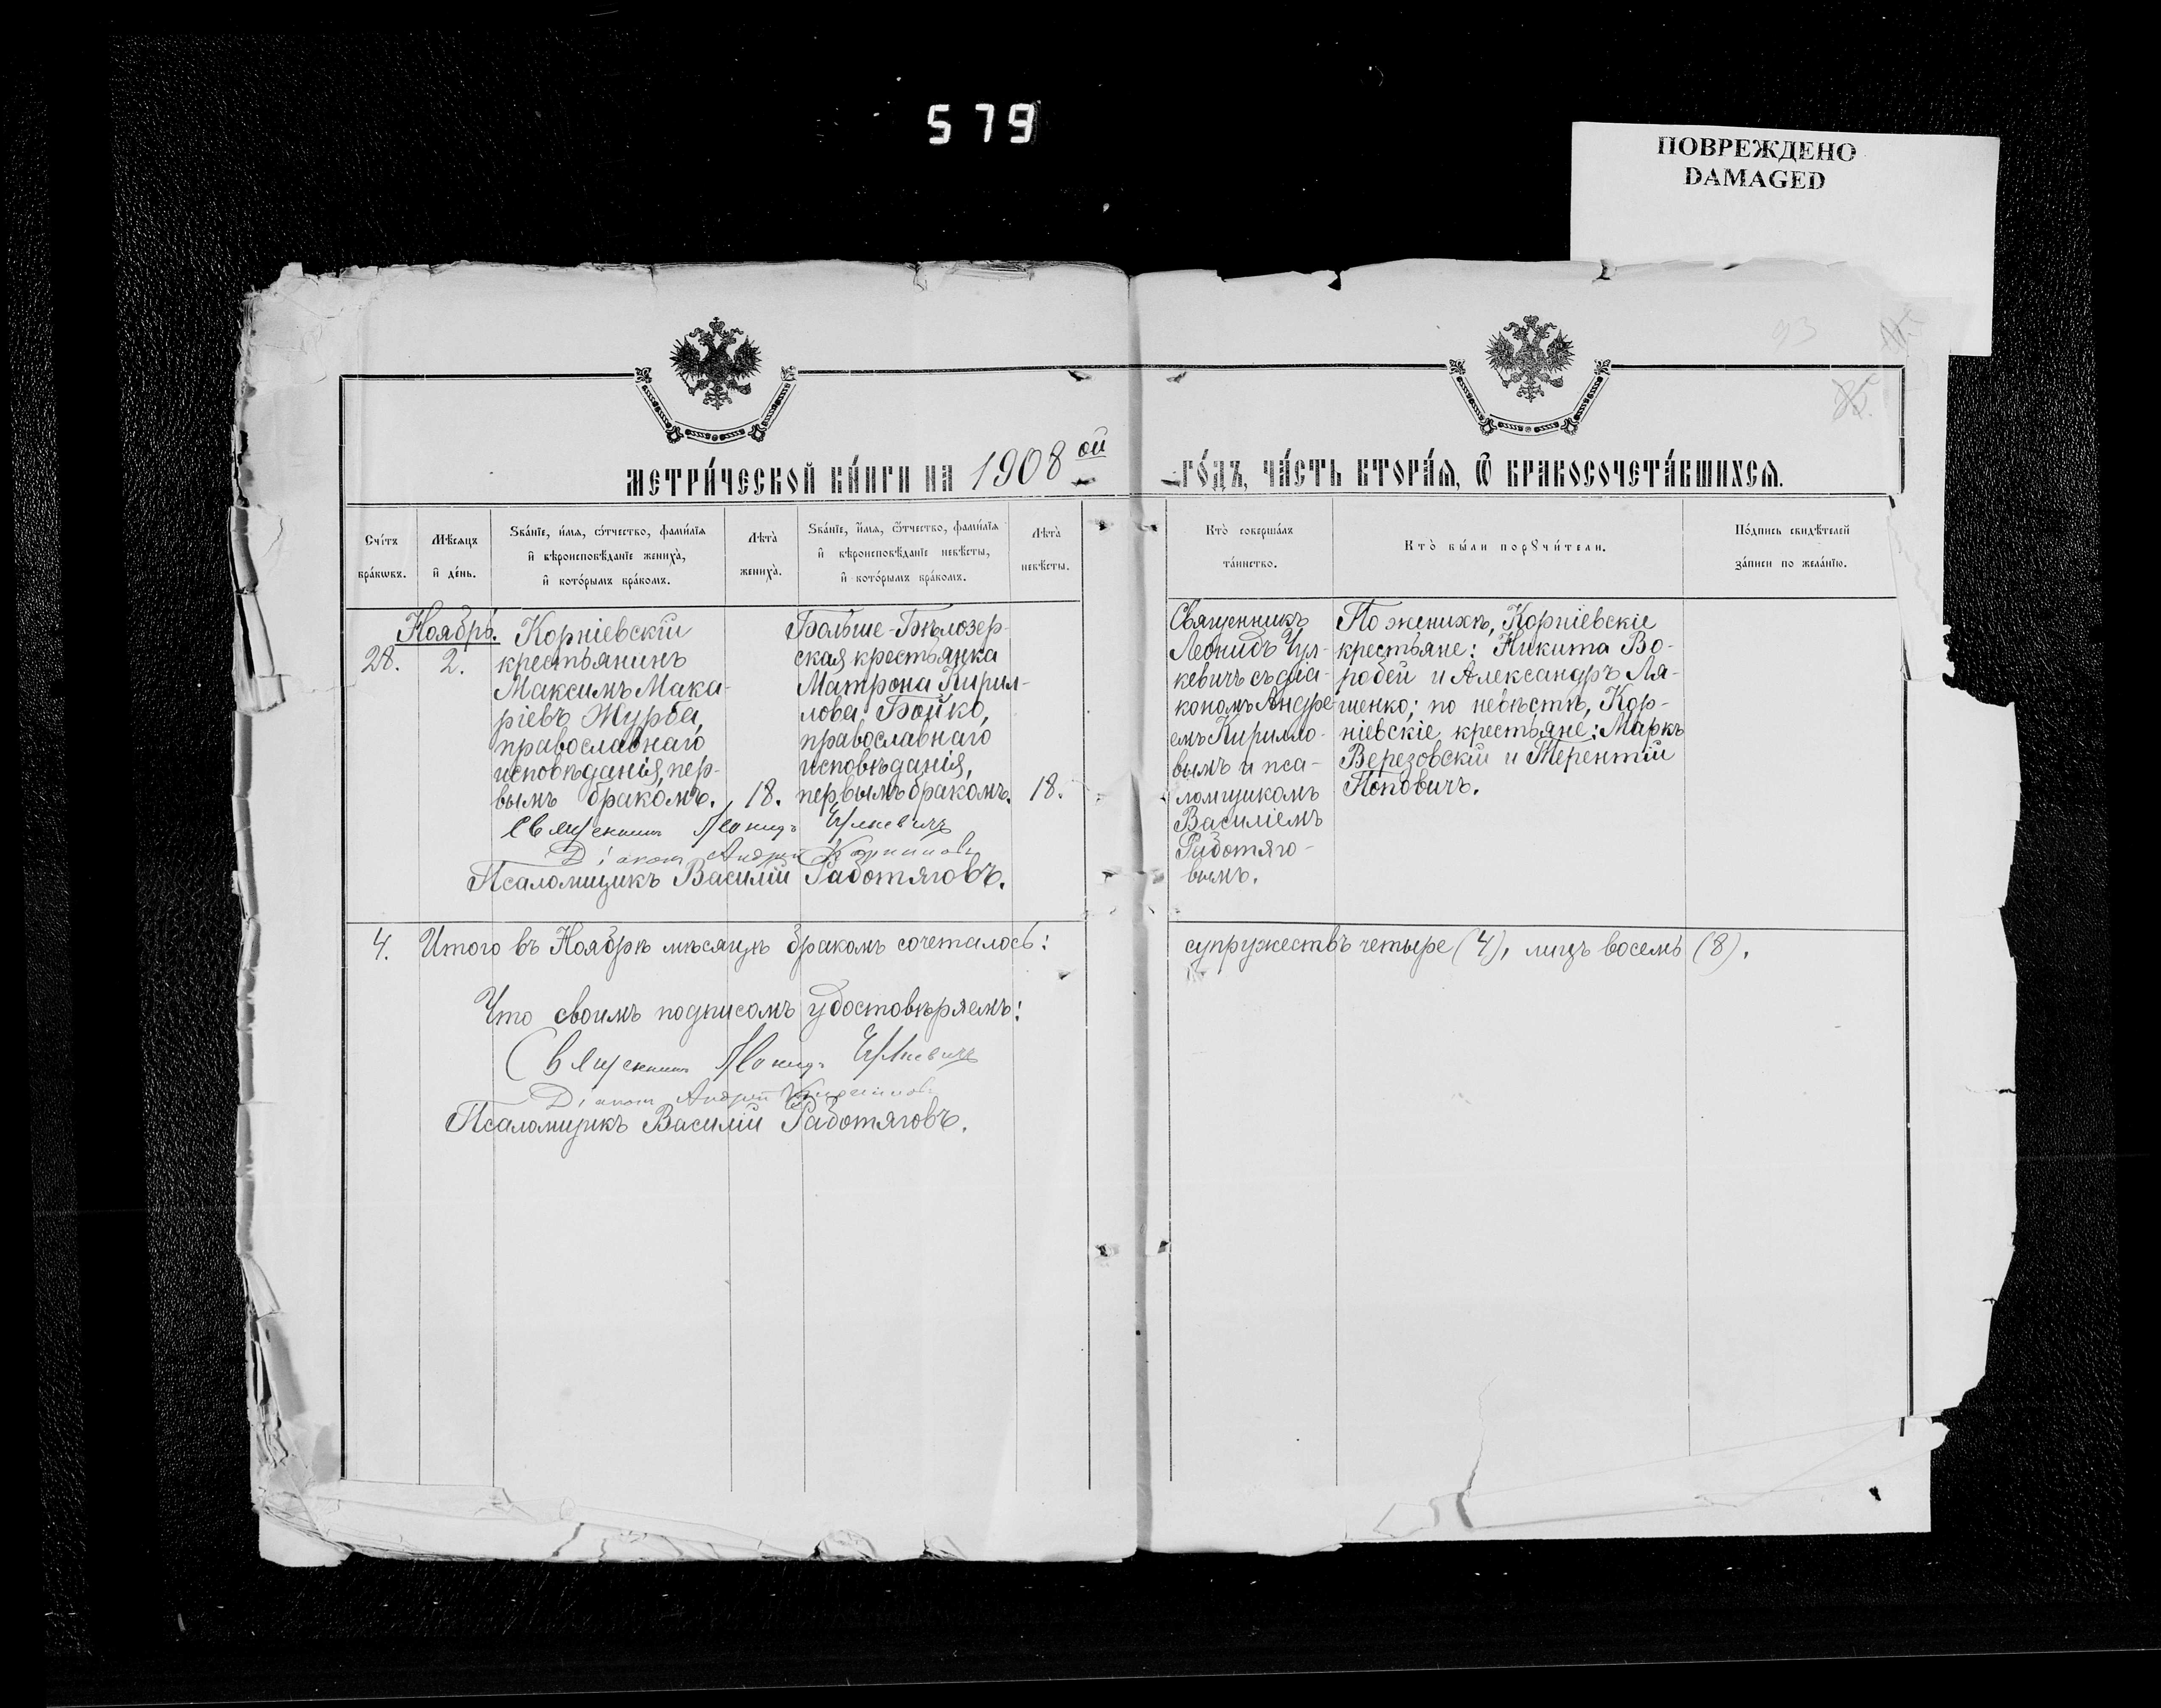 579
ПОВРЕЖДЕНО
DAMAGED
93
85.
МЕТРИ́ЧЕСКОЙ КНИ́ГИ НА 1908 ой ГО́ДЪ, ЧА́СТЬ ВТОРА́Ѧ, Ѿ БРАКОСОЧЕТА́ВШИХСѦ.
Сче́тъ
бра́кѡвъ.
Мѣсяцъ
и де́нь.
Зва́нїе, и́мя, ѻ́тчество, фами́лїя
и вѣроисповѣ́данїе жениха̀,
и кото́рымъ бра́комъ.
Лѣта̀
жениха̀.
Зва́нїе, и́мя, ѻ́тчество, фами́лїя
и вѣроисповѣ́данїе невѣ́сты,
и кото́рымъ бра́комъ.
Лѣта̀
невѣ́сты.
Кто̀ соверша́лъ
та́инство.
Кто̀ бы́ли порꙋчи́тели.
По́дпись свидѣ́телей
за́писи по жела́нїю.
Ноябрь.
28.
2.
Корніевскій
крестьянинъ
Максимъ Мака-
ріевъ Журба,
православнаго
исповѣданія, пер-
вымъ бракомъ.
18.
Больше-Бѣлозер-
ская крестьянка
Матрона Кирил-
лова Бойко,
православнаго
исповѣданія,
первымъ бракомъ.
18.
Священникъ
Леонидъ Чул-
кевичъ съ діа-
кономъ Андре-
емъ Кирилло-
вымъ и пса-
ломщикомъ
Василіемъ
Работяго-
вымъ.
По женихѣ, Корніевскіе
крестьяне: Никита Во-
робей и Александръ Ля-
шенко; по невѣстѣ, Кор-
ніевскіе крестьяне: Маркъ
Березовскій и Терентій
Поповичъ.
Священникъ Леонидъ Чулкевичъ
Діаконъ Андрей Кирилловъ
Псаломщикъ Василій Работяговъ.
4. Итого въ Ноябрѣ мѣсяцѣ бракомъ сочеталось: супружествъ четыре (4), лицъ восемь (8).
Что своимъ подписомъ удостовѣряемъ:
Священникъ Леонидъ Чулкевичъ
Діаконъ Андрей Кирилловъ
Псаломщикъ Василій Работяговъ.